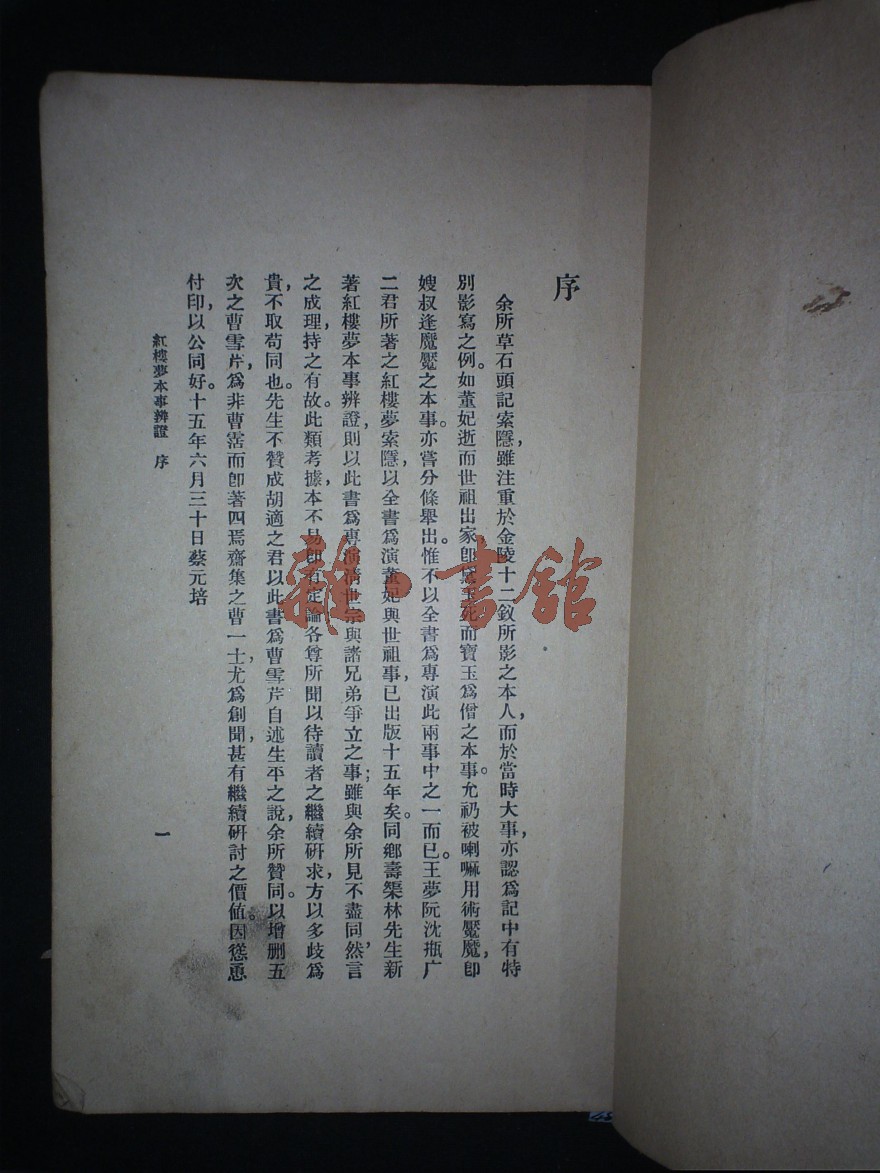 序
余所草石頭記索隱,雖注重於金陵十二釵所影之本人,而於當時大事,亦認爲記中有特
別影寫之例。如董妃逝而世祖出家,卽黛玉死而寶玉爲僧之本事。允礽被喇嘛用術魘魔,卽
嫂叔逢魔魘之本事。亦嘗分條舉出。惟不以全書爲專演此兩事中之一而已。王夢阮沈甁广
二君所著之紅樓夢索隱,以全書爲演董妃與世祖事,已出版十五年矣。同鄉壽榘林先生新
著紅樓夢本事辨證,則以此書爲專演淸世宗與諸兄弟爭立之事;雖與余所見不盡同,然言
之成理,持之有故。此類考據,本不易卽有定論各尊所聞以待讀者之繼續硏求,方以多歧爲
貴,不取苟同也。先生不贊成胡適之君以此書爲曹雪芹自述生平之說,余所贊同。以增删五
次之曹雪芹,爲非曹霑而卽著四焉齋集之曹一士,尤爲創聞,甚有繼續硏討之價値。因慫恿
付印,以公同好。十五年六月三十日蔡元培
紅樓夢本事辨證 序
一
雜·書館